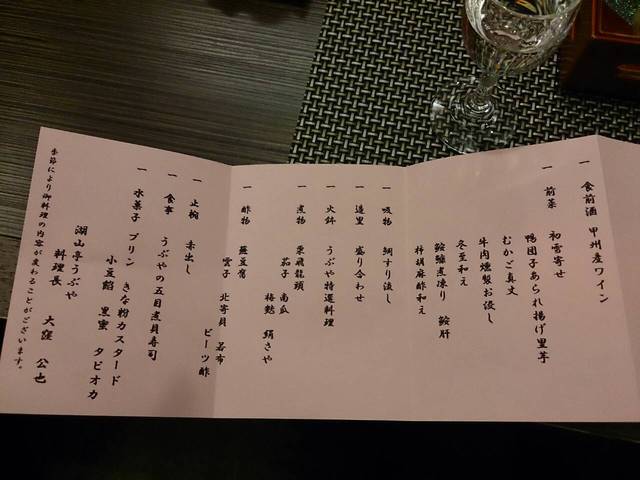 一 食前酒 甲州産ワイン
一 前菜 初雪寄せ
鴨団子あられ揚げ里芋
むかご真丈
牛肉燻製お浸し
冬至和え
鮟鱇煮凍り 鮟肝
柿胡麻酢和え
一 吸物 鯛すり流し
一 造里 盛り合わせ
一 火鉢 うぶや特選料理
一 煮物 栗飛龍頭
茄子 南瓜
梅麩 絹さや
一 酢物 蕪豆腐
雲子 北寄貝 若布
ビーツ酢
一 止椀 赤出し
一 食事 うぶやの五目煮貝寿司
一 水菓子 プリン きな粉カスタード
小豆餡 黒蜜 タピオカ
湖山亭うぶや
料理長 大窪 公也
季節により御料理の内容が変わることがございます。